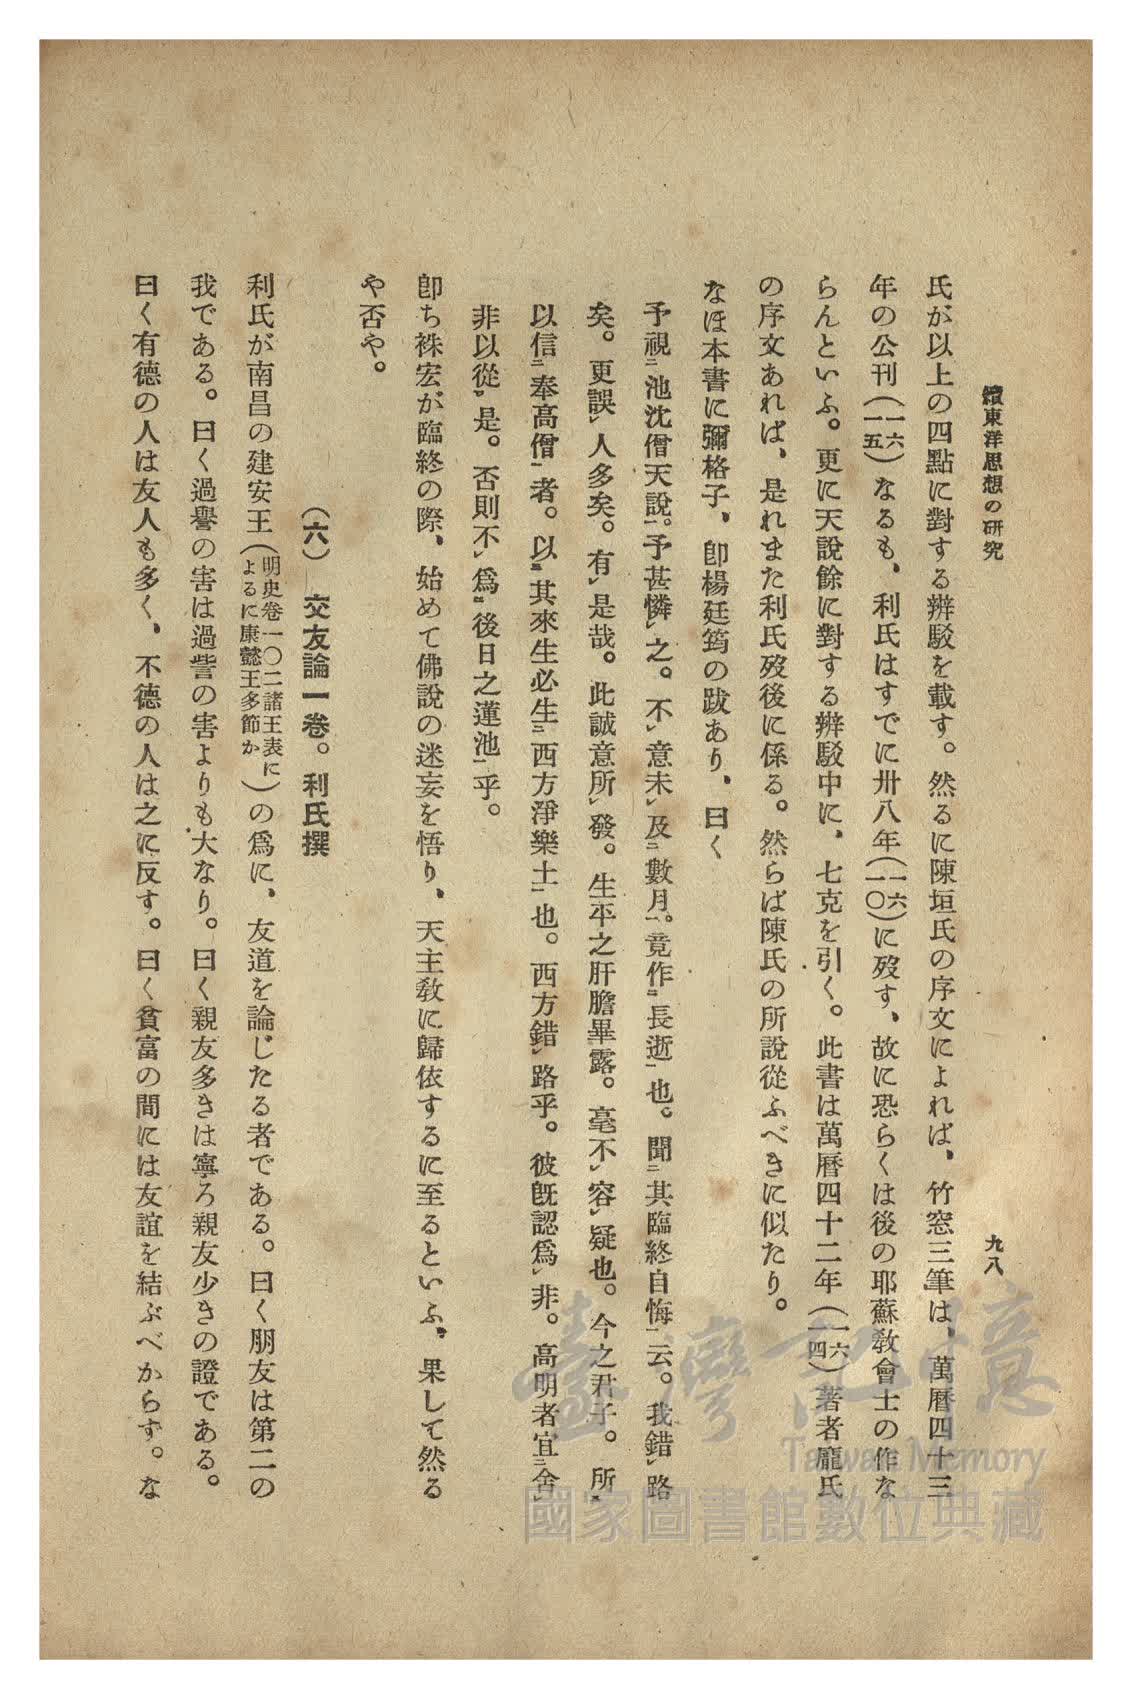 續東洋思想の硏究
九八
氏が以上の四點に對する辨駁を載す。然るに陳垣氏の序文によれば、竹窓三筆は、萬曆四十三
年の公刊(一六一五)なるも、利氏はすでに卅八年(一六一〇)に歿す、故に恐らくは後の耶蘇敎會士の作な
らんといふ。更に天說餘に對する辨駁中に、七克を引く。此書は萬曆四十二年(一六一四)著者龐氏
の序文あれば、是れまた利氏歿後に係る。然らば陳氏の所說從ふべきに似たり。
なほ本書に彌格子、卽楊廷筠の跋あり、曰く
予視㆓池沈僧天說㆒。予甚憐㆑之。不㆑意未㆑及㆓數月㆒。竟作㆓長逝㆒也。聞㆓其臨終自悔㆒云。我錯㆑路
矣。更誤㆑人多矣。有㆑是哉。此誠意所㆑發。生平之肝膽畢露。毫不㆑容㆑疑也。今之君子。所㆘
以信㆓奉高僧㆒者。以㆘其來生必生㆓西方淨樂土㆒也。西方錯㆑路乎。彼旣認爲㆑非。高明者宜㆓舍㆑
非以從㆑是。否則不㆑爲㆓後日之蓮池㆒乎。
卽ち袾宏が臨終の際、始めて佛說の迷妄を悟り、天主敎に歸依するに至るといふ、果して然る
や否や。
(六) 交友論一卷。利氏撰
利氏が南昌の建安王(明史卷一〇二諸王表によるに康懿王多節か)の爲に、友道を論じたる者である。曰く朋友は第二の
我である。曰く過譽の害は過訾の害よりも大なり。曰く親友多きは寧ろ親友少きの證である。
曰く有德の人は友人も多く、不德の人は之に反す。曰く貧富の間には友誼を結ぶべからず。な
臺灣記憶
Taiwan Memory
國家圖書館數位典藏